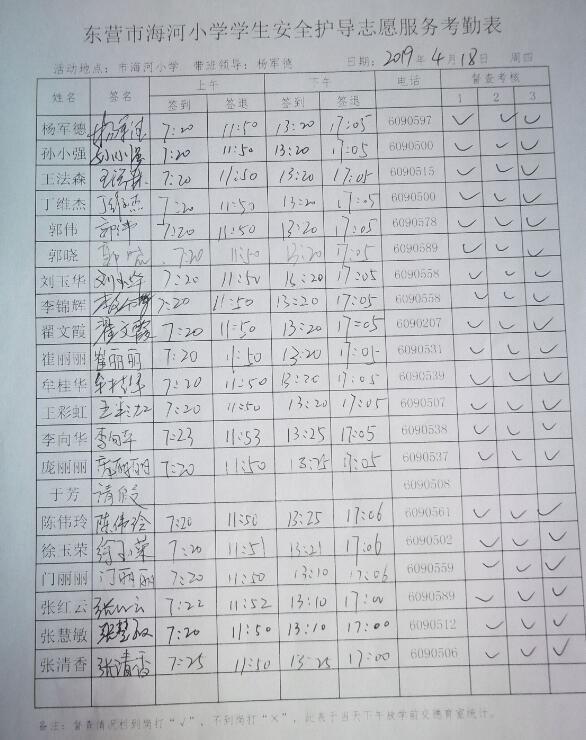 东营市海河小学学生安全护导志愿服务考勤表
活动地点：市海河小学 带班领导：杨军德 日期：2019年4月18日 周四
姓名 签名 上午 下午 电话 督查考核
签到 签退 签到 签退 1 2 3
杨军德 杨军德 7:20 11:50 13:20 17:05 6090597 ✓ ✓ ✓
孙小强 孙小强 7:20 11:50 13:20 17:05 6090500 ✓ ✓ ✓
王法森 王法森 7:20 11:50 13:20 17:05 6090515 ✓ ✓ ✓
丁维杰 丁维杰 7:20 11:50 13:20 17:05 6090500 ✓ ✓ ✓
郭伟 郭伟 7:20 11:50 13:20 17:05 6090578 ✓ ✓ ✓
郭晓 郭晓 7:20 11:50 13:20 17:05 6090589 ✓ ✓ ✓
刘玉华 刘玉华 7:20 11:50 13:20 17:05 6090558 ✓ ✓ ✓
李锦辉 7:20 11:50 13:20 17:05 6090558 ✓ ✓ ✓
翟文霞 翟文霞 7:20 11:50 13:20 17:05 6090207 ✓ ✓ ✓
崔丽丽 崔丽丽 7:20 11:50 13:20 17:05 6090531 ✓ ✓ ✓
牟桂华 牟桂华 7:20 11:50 13:20 17:05 6090539 ✓ ✓ ✓
王彩虹 王彩虹 7:20 11:50 13:20 17:05 6090507 ✓ ✓ ✓
李向华 李向华 7:23 11:53 13:25 17:05 6090538 ✓ ✓ ✓
庞丽丽 庞丽丽 7:20 11:50 13:25 17:05 6090537 ✓ ✓ ✓
于芳 请假 6090508
陈伟玲 陈伟玲 7:20 11:50 13:25 17:06 6090561 ✓ ✓ ✓
徐玉荣 徐玉荣 7:20 11:51 13:21 17:06 6090502 ✓ ✓ ✓
门丽丽 门丽丽 7:20 11:50 13:10 17:06 6090559 ✓ ✓ ✓
张红云 张红云 7:22 11:52 13:10 17:00 6090589 ✓ ✓ ✓
张慧敏 张慧敏 7:20 11:50 13:10 17:00 6090512 ✓ ✓ ✓
张清香 张清香 7:25 11:50 13:25 17:00 6090506 ✓ ✓ ✓
备注：督查情况栏到岗打“√”，不到岗打“×”，此表于当天下午放学前交德育室统计。